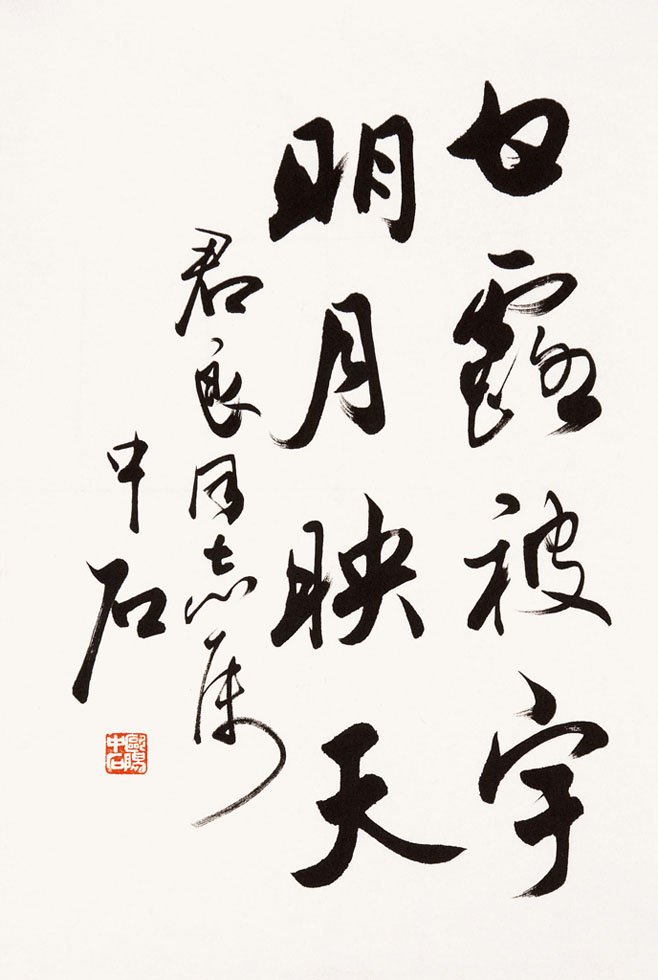 白露被宇
明月映天
君良同志属
中石
歐陽中石